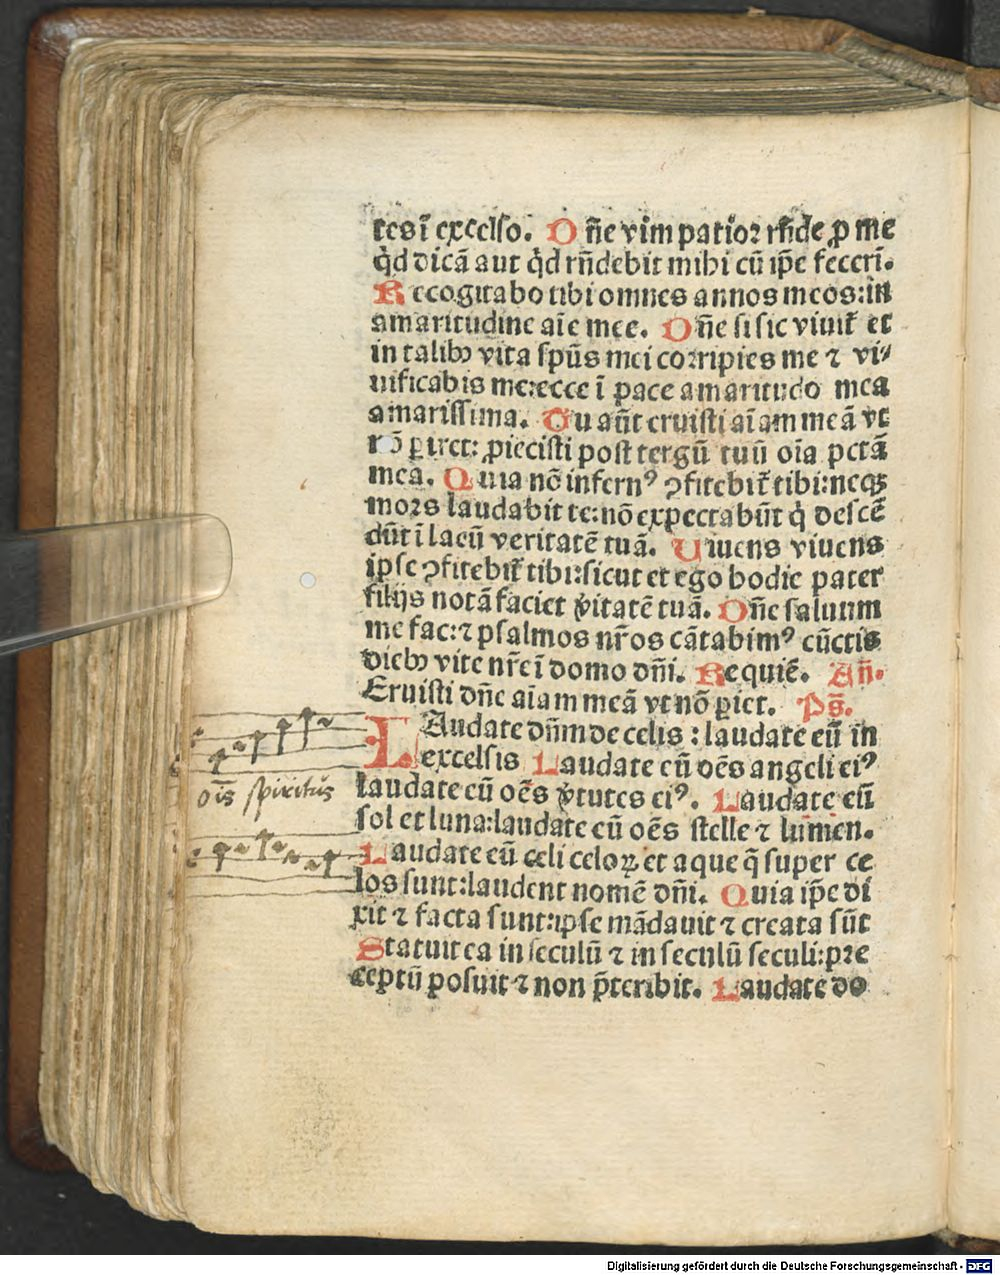 tes ī excelso. Dñe vim patior rñde ꝓ me
qd̉ dicā aut qd̉ rñdebit mihi cū ip̄e fecerī.
Recogitabo tibi omnes annos meos: in
amaritudine aīe mee. Dñe si sic viuit᷑ et
in talibꝫ vita spūs mei corripies me ⁊ vi⸗
uificabis me: ecce ī pace amaritudo mea
amarissima. Tu aūt eruisti aīam meā vt
nō ꝑiret: ꝓiecisti post tergū tuū oīa pctā
mea. Quia nō infernꝰ ꝯfitebit᷑ tibi: neqꝫ
mors laudabit te: nō expectabūt q̇ descē
dūt ī lacū veritatē tuā. Uiuens viuens
ipse ꝯfitebit᷑ tibi: sicut et ego hodie pater
filijs notā faciet v̓itatē tuā. Dñe saluum
me fac: ⁊ psalmos nr̄os cātabimꝰ cūctis
diebꝫ vite nr̄e ī domo dñi. Requiē. Añ.
Eruisti dñe aīam meā vt nō ꝑiet. Ps̄.
LAudate dñm de celis: laudate eū in
excelsis Laudate eū oēs angeli eiꝰ
oīs spiritus
laudate eū oēs v̓tutes eiꝰ. Laudate eū
sol et luna: laudate eū oēs stelle ⁊ lumen.
Laudate eū celi celoꝝ et aque q̄ super ce
los sunt: laudent nomē dñi. Quia ip̄e di
xit ⁊ facta sunt: ipse mādauit ⁊ creata sūt
Statuit ea in seculū ⁊ in seculū seculi: pre
ceptū posuit ⁊ non p̄teribit. Laudate do
Digitalisierung gefördert durch die Deutsche Forschungsgemeinschaft - DFG